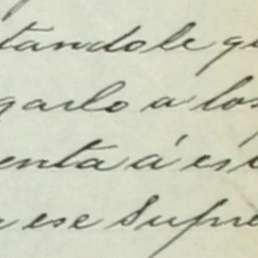 tandole q
garlo a los
enta á est
ese Supre